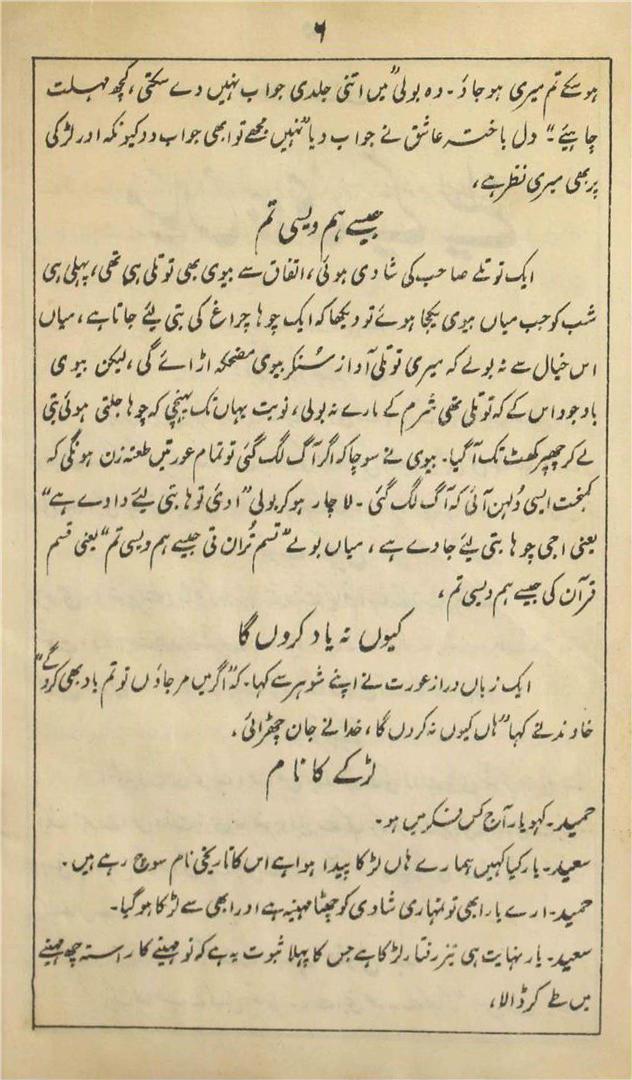 ۶
ہوسکے تم میری ہو جاؤ۔ وہ بولی "میں اتنی جلدی جواب نہیں دے سکتی، کچھ مہلت
چاہیئے۔" دل باختہ عاشق نے جواب دیا "نہیں مجھے تو ابھی جواب دو کیونکہ اور لڑکی
پر بھی میری نظر ہے،
جیسے ہم ویسی تم
ایک توتلے صاحب کی شادی ہوئی، اتفاق سے بیوی بھی توتلی ہی تھی، پہلی ہی
شب کو جب میاں بیوی یکجا ہوئے تو دیکھا کہ ایک چوہا چراغ کی بتی لئے جاتا ہے، میاں
اس خیال سے نہ بولے کہ میری توتلی آواز سُنکر بیوی مضحکہ اڑائے گی، لیکن بیوی
باوجود اس کے کہ توتلی تھی شرم کے مارے نہ بولی، نوبت یہاں تک پہنچی کہ چوہا جلتی ہوئی بتی
لے کر چھپر کھٹ تک آ گیا۔ بیوی نے سوچا کہ اگر آگ لگ گئی تو تمام عورتیں طعنہ زن ہونگی کہ
کمبخت ایسی دُلہن آئی کہ آگ لگ گئی۔ لاچار ہو کر بولی "ادئی توہا بتی لئے دادے ہے"
یعنی اجی چوہا بتی لئے جاوے ہے، میاں بولے "تسم تُران تی جیسے ہم ویسی تم" یعنی قسم
قرآن کی جیسے ہم ویسی تم،
کیوں نہ یاد کروں گا
ایک زباں دراز عورت نے اپنے شوہر سے کہا۔ کہ "اگر میں مر جاؤں تو تم یاد بھی کروگے"
خاوند نے کہا "ہاں کیوں نہ کروں گا، خدا نے جان چھڑائی،
لڑکے کا نام
حمید۔ کہو یار آج کس فکر میں ہو۔
سعید۔ یار کیا کہیں ہمارے ہاں لڑکا پیدا ہوا ہے اس کا تاریخی نام سوچ رہے ہیں۔
حمید۔ ارے یار ابھی تو تمہاری شادی کو چھٹا مہینہ ہے اور ابھی سے لڑکا ہو گیا۔
سعید۔ یار نہایت ہی تیز رفتار لڑکا ہے جس کا پہلا ثبوت یہ ہے کہ نو مہینے کا راستہ چھ مہینے
میں طے کر ڈالا،